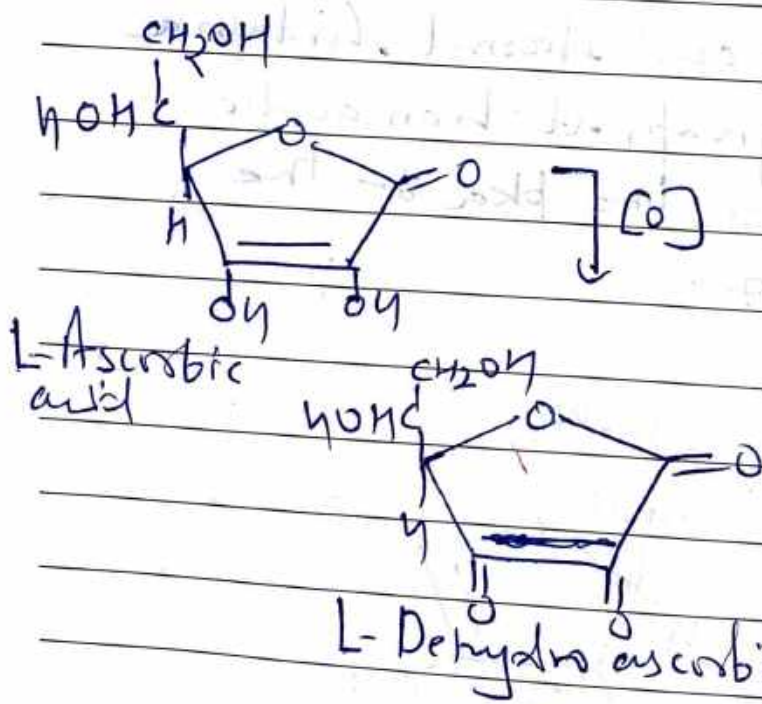 CH2OH
HOHC
O
O
[O]
H
OH OH
L-Ascorbic
acid
CH2OH
HOHC
O
O
H
O O
L-Dehydro ascorb